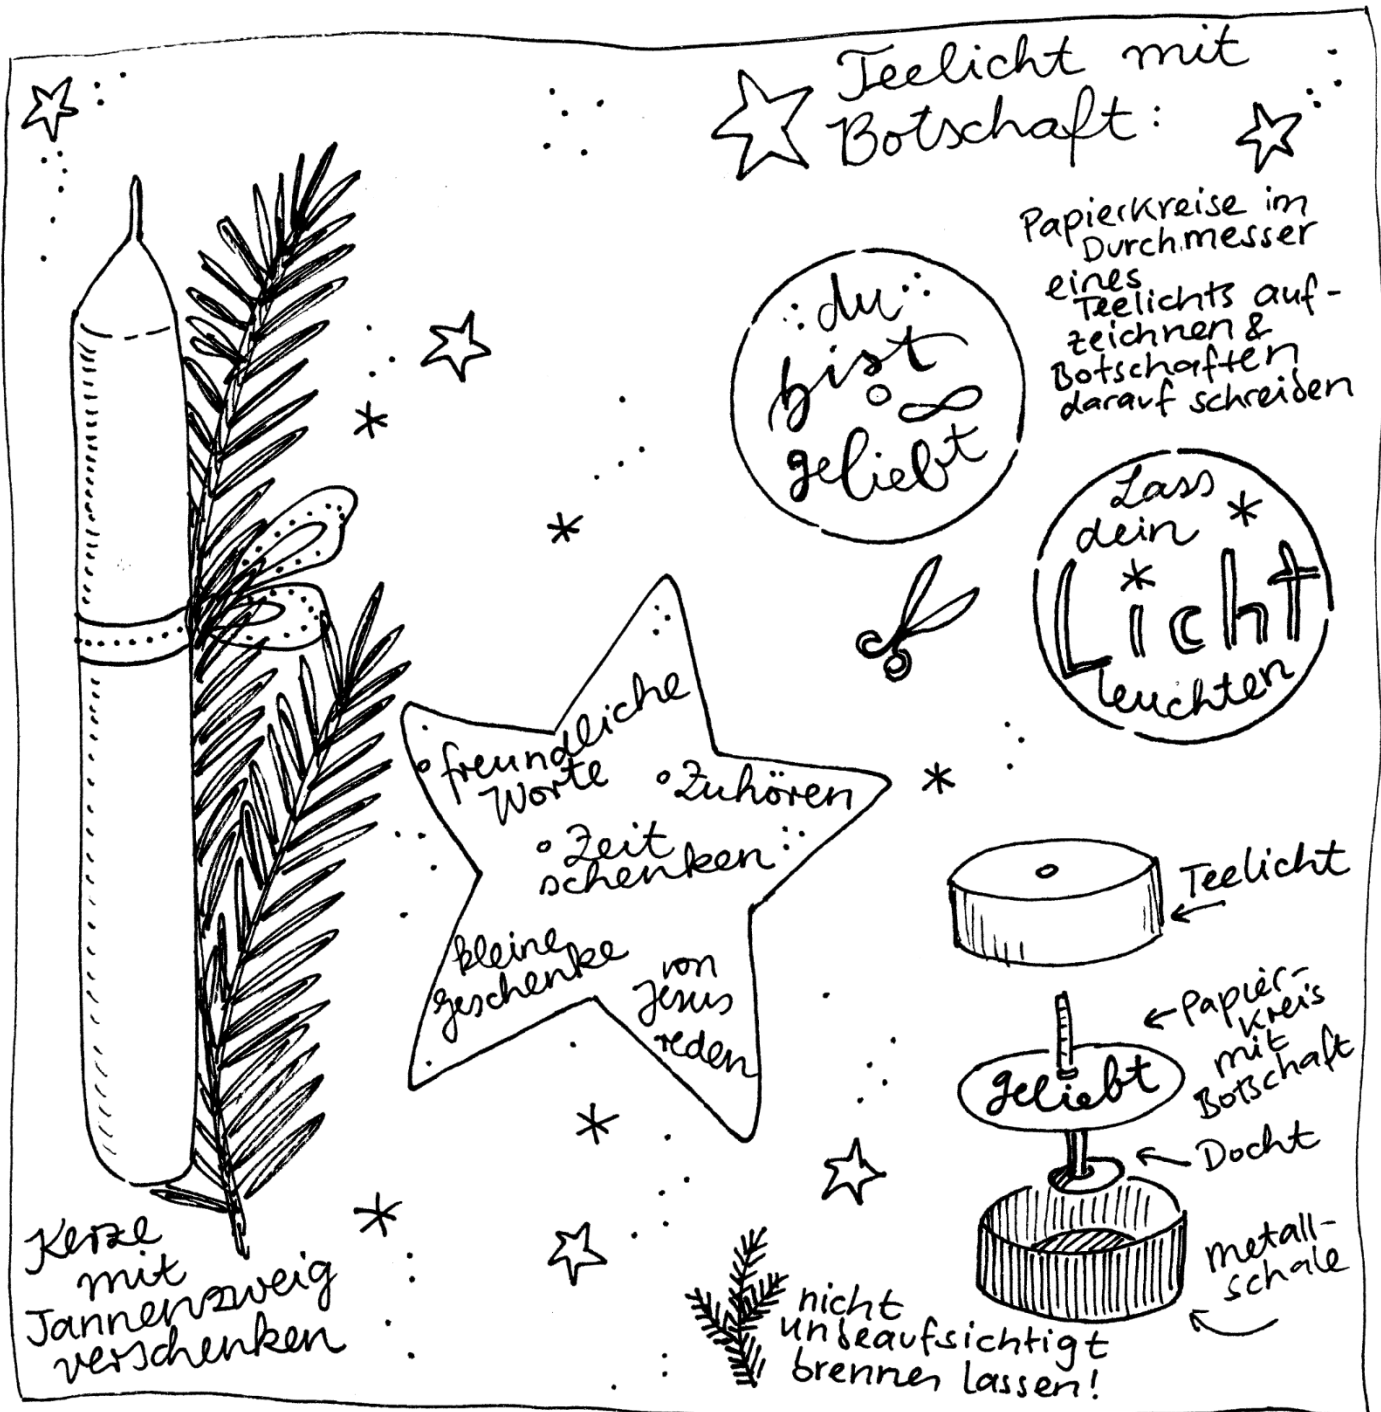 Teelicht mit
Botschaft:
Papierkreise im
Durchmesser
eines
Teelichts auf-
zeichnen &
Botschaften
darauf schreiben
du
bist
geliebt
Lass
dein
Licht
leuchten
freundliche
Worte
Zuhören
Zeit
schenken
kleine
Geschenke
von
Jesus
reden
Teelicht
Papier-
kreis
mit
Botschaft
geliebt
Docht
Metall-
schale
Kerze
mit
Tannenzweig
verschenken
nicht
unbeaufsichtigt
brennen lassen!